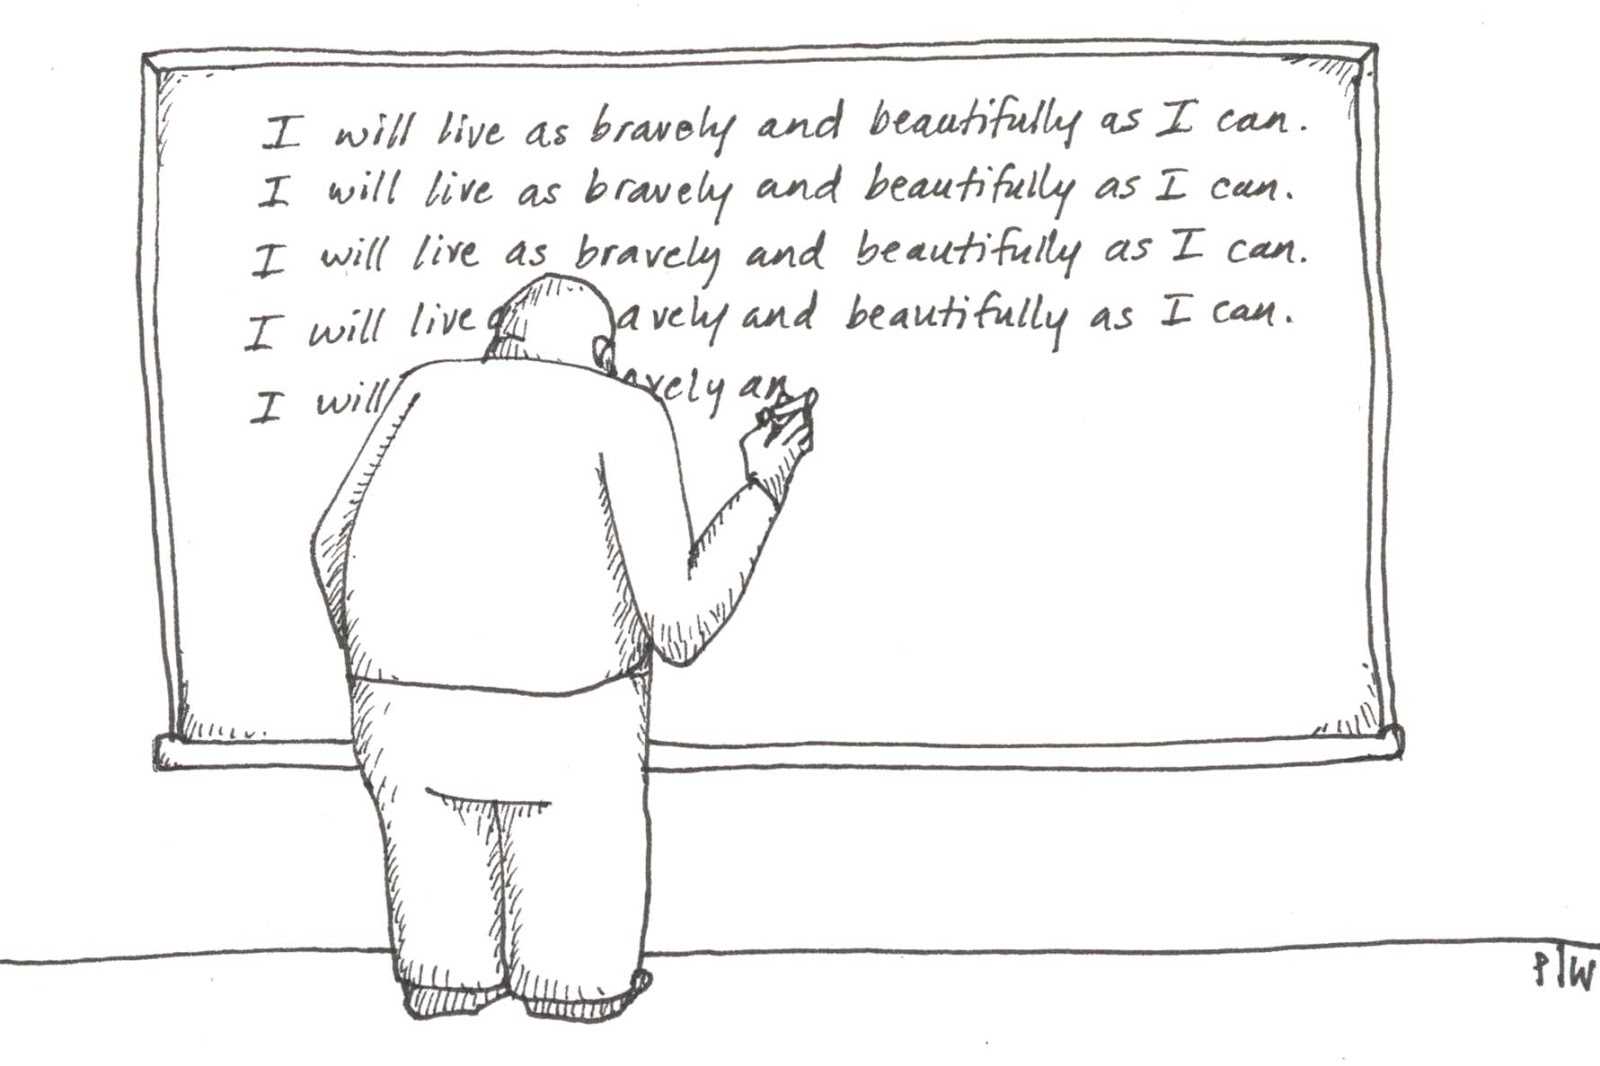 I will live as bravely and beautifully as I can.
I will live as bravely and beautifully as I can.
I will live as bravely and beautifully as I can.
I will live avely and beautifully as I can.
I will vely an
P|W